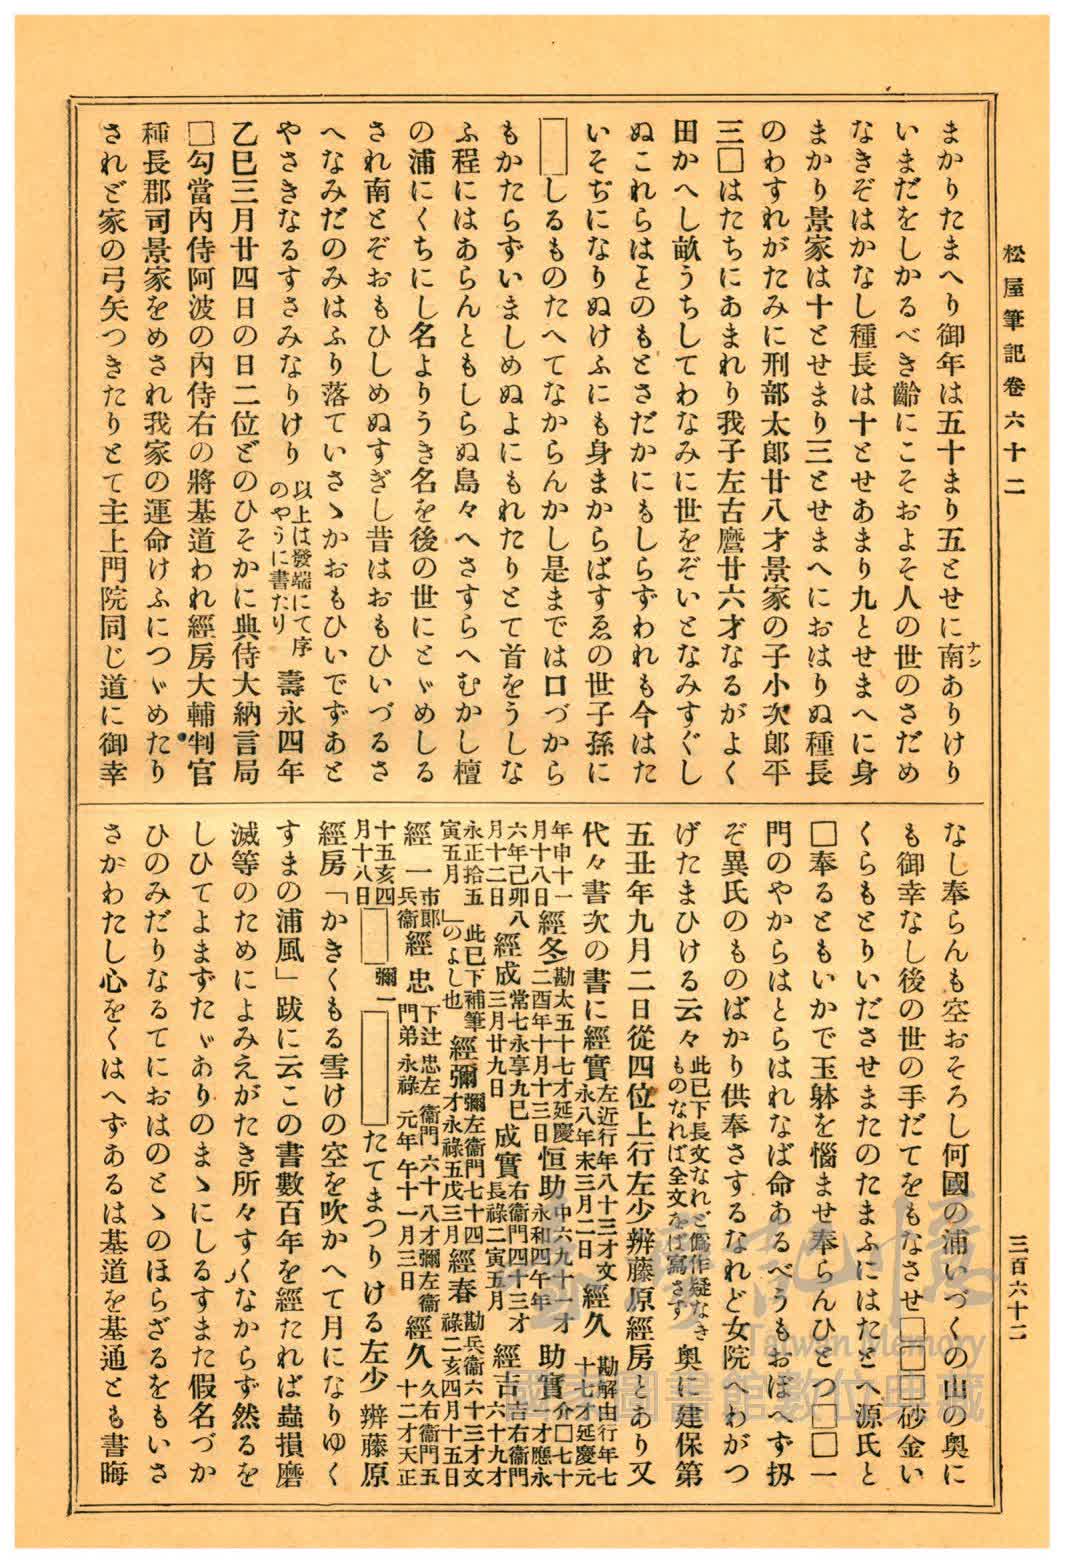 松屋筆記卷六十二
三百六十二
まかりたまへり御年は五十まり五とせに南ありけり
ナン
いまだをしかるべき齢にこそおよそ人の世のさだめ
なきぞはかなし種長は十とせあまり九とせまへに身
まかり景家は十とせまり三とせまへにおはりぬ種長
のわすれがたみに刑部太郎廿八才景家の子小次郎平
三□はたちにあまれり我子左古麿廿六才なるがよく
田かへし畝うちしてわなみに世をぞいとなみすぐし
ぬこれらはとのもとさだかにもしらずわれも今はた
いそぢになりぬけふにも身まからばすゑの世子孫に
□しるものたへてなからんかし是までは口づから
もかたらずいましめぬよにもれたりとて首をうしな
ふ程にはあらんともしらぬ島々へさすらへむかし檀
の浦にくちにし名よりうき名を後の世にとゞめしる
され南とぞおもひしめぬすぎし昔はおもひいづるさ
へなみだのみはふり落ていさゝかおもひいでずあと
やさきなるすさみなりけり以上は發端にて序のやうに書たり 壽永四年
乙巳三月廿四日の日二位どのひそかに典侍大納言局
□勾當内侍阿波の内侍右の將基道われ經房大輔判官
種長郡司景家をめされ我家の運命けふにつゞめたり
されど家の弓矢つきたりとて主上門院同じ道に御幸
なし奉らんも空おそろし何國の浦いづくの山の奥に
も御幸なし後の世の手だてをもなさせ□□□砂金い
くらもとりいださせまたのたまふにはたとへ源氏と
□奉るともいかで玉躰を惱ませ奉らんひとつ□□一
門のやからはとらはれなば命あるべうもおぼへず扨
ぞ異氏のものばかり供奉さするなれど女院へわがつ
げたまひける云々此已下長文なれど僞作疑なきものなれば全文をば寫さず 奥に建保第
五丑年九月二日從四位上行左少辨藤原經房とあり又
代々書次の書に經實左近行年八十三才文永八年末三月二日 經久勘解由行年七十七才延慶元
年申十一月十八日 經冬勘太五十七才延慶二酉年十月十三日 恒助中六九十一才永和四午年 助實介□七十一才應永
六年己卯八月十二日 經成常七永享九巳三月廿九日 成實右衞門四十三才長祿二寅五月 經吉吉右衞門六十九才
永正拾五寅五月 此已下補筆のよし也」 經彌彌左衞門七十四才永祿五戊三月 經春勘兵衞六十三才文祿二亥四月十五日
經一市郞兵衞 經忠下辻忠左衞門六十八才彌左衞門弟永祿元年午十一月三日 經久久右衞門五十二才天正
十五亥四月十八日 □彌一 □たてまつりける左少辨藤原
經房「かきくもる雪けの空を吹かへて月になりゆく
すまの浦風」跋に云この書數百年を經たれば蟲損磨
滅等のためによみえがたき所々すくなからず然るを
しひてよまずたゞありのまゝにしるすまた假名づか
ひのみだりなるてにおはのとゝのほらざるをもいさ
さかわたし心をくはへずあるは基道を基通とも書晦
臺灣記憶
Taiwan Memory
國家圖書館數位典藏